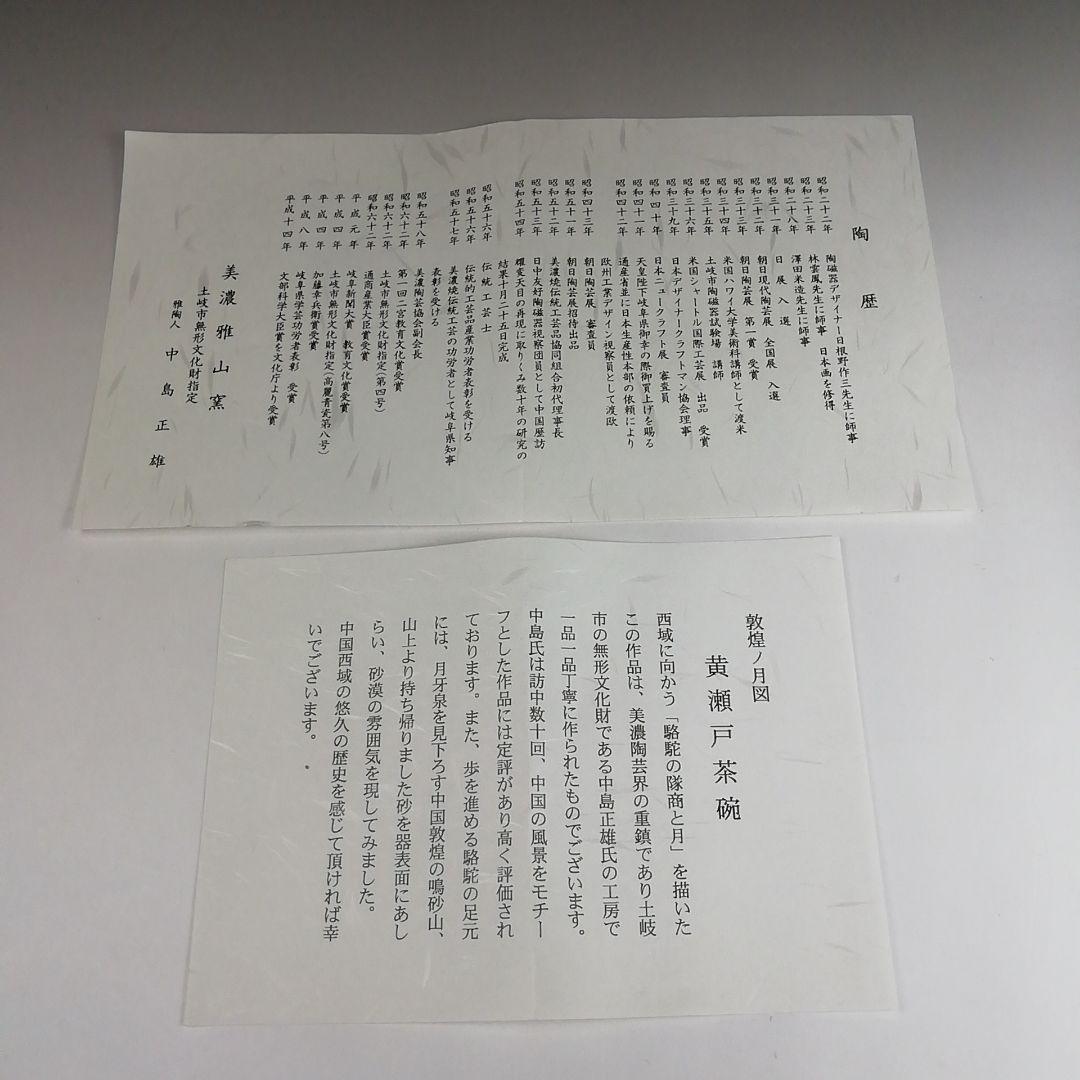 陶歴
昭和二十二年 陶磁器デザイナー日根野作三先生に師事
昭和二十三年 林雲鳳先生に師事 日本画を修得
昭和二十八年 澤田米造先生に師事
昭和三十一年 日展入選
昭和三十二年 朝日現代陶芸展 全国展 入選
昭和三十三年 朝日陶芸展 第一賞 受賞
昭和三十四年 米国ハワイ大学美術科講師として渡米
昭和三十五年 土岐市陶磁器試験場 講師
昭和三十六年 米国シャートル国際工芸展 出品 受賞
昭和三十九年 日本デザイナークラフトマン協会理事
昭和四十年 日本ニュークラフト展 審査員
昭和四十一年 天皇陛下岐阜県御幸の際御買上げを賜る
昭和四十二年 通産省並に日本生産性本部の依頼により
欧州工業デザイン視察員として渡欧
昭和四十三年 朝日陶芸展 審査員
昭和五十一年 朝日陶芸展招待出品
昭和五十二年 美濃焼伝統工芸品協同組合初代理事長
昭和五十三年 日中友好陶磁器視察団員として中国歴訪
昭和五十四年 耀変天目の再現に取りくみ数十年の研究の
結果十月二十五日完成
昭和五十六年 伝統工芸士
昭和五十六年 伝統的工芸品産業功労者表彰を受ける
昭和五十七年 美濃焼伝統工芸の功労者として岐阜県知事
表彰を受ける
昭和五十八年 美濃陶芸協会副会長
昭和六十二年 第一回二宮教育文化賞受賞
昭和六十二年 土岐市無形文化財指定(第四号)
昭和六十二年 通商産業大臣賞受賞
平成元年 岐阜新聞大賞 教育文化賞受賞
平成四年 土岐市無形文化財指定(高麗青瓷第八号)
平成四年 加藤幸兵衛賞受賞
平成八年 岐阜県学芸功労者表彰 受賞
平成十四年 文部科学大臣賞を文化庁より受賞
美濃雅山窯
土岐市無形文化財指定
雅陶人 中島正雄
敦煌ノ月図
黄瀬戸茶碗
西域に向かう「駱駝の隊商と月」を描いた
この作品は、美濃陶芸界の重鎮であり土岐
市の無形文化財である中島正雄氏の工房で
一品一品丁寧に作られたものでございます。
中島氏は訪中数十回、中国の風景をモチー
フとした作品には定評があり高く評価され
ております。また、歩を進める駱駝の足元
には、月牙泉を見下ろす中国敦煌の鳴砂山、
山上より持ち帰りました砂を器表面にあし
らい、砂漠の雰囲気を現してみました。
中国西域の悠久の歴史を感じて頂ければ幸
いでございます。